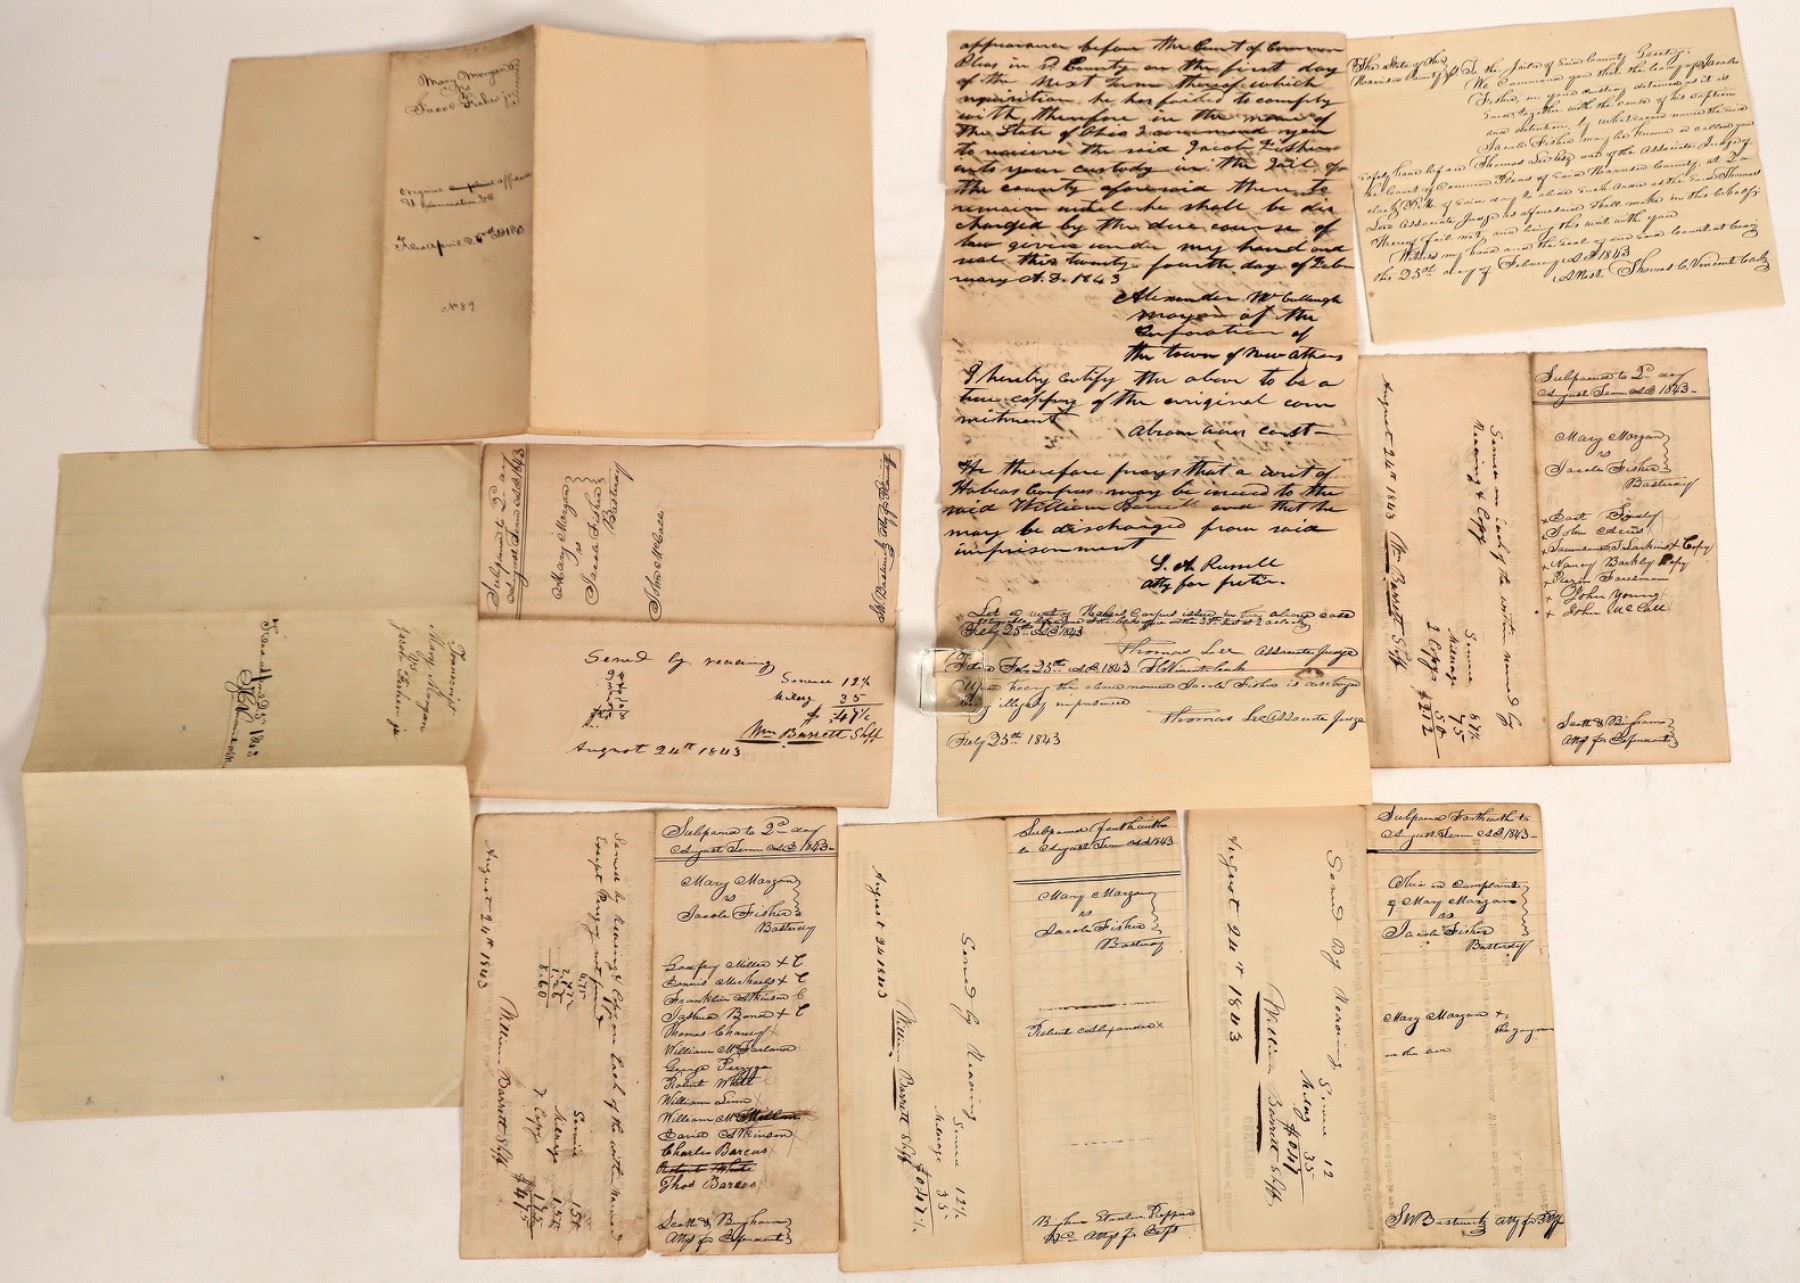 Mary Morgan
vs
Jacob Fisher jr
Filed April 26th 1843
No 89
appearance before the Court of Common
Pleas in Sd County on the first day
of the next Term thereof which
requisition he has failed to comply
with, therefore in the name of
the State of Ohio I command you
to receive the said Jacob Fisher
into your custody in the Jail of
the county aforesaid there to
remain until he shall be dis
charged by the due course of
law given under my hand and
seal this twenty fourth day of Feb
ruary A.D. 1843
Alexander McCullaugh
Mayor of the
Corporation of
the town of New Athens
I hereby certify the above to be a
true coppy of the original com
mitment
const
He therefore prays that a writ of
Habeas Corpus may be issued to the
said William Barrett and that he
may be discharged from said
imprisonment
S. A. Russell
atty for petir.
Let a writ of Habeas Corpus issue in the above case
Feby 25th AD 1843
Thomas Lee Associate Judge
Filed Feb 25th AD 1843 Vincent clerk
Upon hearing the above named Jacob Fisher is discharged
being illegally imprisoned
Thomas Lee Associate Judge
Feby 25th 1843
The State of Ohio
Harrison County ss To the Jailor of Said County Greeting:
We Command you that the body of Jacob
Fisher, in your custody detained as it is
said, together with the cause of his caption
and detention, by whatsoever name the said
Jacob Fisher may be known or called you
safely have before Thomas Lee Esq one of the Associate Judges of
the Court of Common Pleas of Said Harrison County, at 2 o
clock P.M. of said day to abide such order as the said Thomas
Lee Associate Judge as aforesaid shall make in this behalf;
Hereof fail not, and bring this writ with you
Witness my hand and the seal of our said Court at Cadiz
the 25th day of February AD 1843
Attest. Thomas C. Vincent Clerk
Transcript
Mary Morgan
vs
Jacob Fisher jr
Subpoena to 2d day
August Term AD 1843
Mary Morgan
vs
Jacob Fisher
Bastardy
John McCall
Served by reading
Service 12½
Milag 35
$ .47½
Wm Barrett Shff
August 24th 1843
August 24th 1843 Wm Barrett Shff
Service on each of the within named by
Reading & Copy
Service 87½
Mileage 75
2 Copys 50
$2.12
Subpoena to 2d day
August Term AD 1843
Mary Morgan
vs
Jacob Fisher
Bastardy
x John
x Nancy Barkby Copy
x John Young
x John McCall
Scott & Bingham
Attys for Defendant
August 24th 1843
William Barrett Shff
Served by Reading & Copy on Each of the within named
Except Perrygo not found
Service 1.50
Mileage 1.50
7 Copy 1.75
$4.75
Subpoena to 2d day
August Term AD 1843
Mary Morgan
vs
Jacob Fisher
Bastardy
Godfrey Miller + C
Dennis Michaels + C
Franklin Atkinson C
Joshua Bond + C
Thomas Chaney
William McFarland
George Perrygo
Robert White
William Linn
William
David Atkinson
Charles Barcus
Robert White
Thos Barcus
Scott & Bingham
Attys for Defendant
August 24 1843
William Barrett Shff
Served by Reading
Service 12½
Mileage 35
$0.47½
Subpoena forthwith
to August Term AD 1843
Mary Morgan
vs
Jacob Fisher
Bastardy
Robert Alexander x
Bingham Stanton Peppard
&Co Attys for Deft
August 24th 1843
William Barrett Shff
Served By Reading
Service 12
Milag 35
$0.47
Subpoena Forthwith to
August Term AD 1843
Ohio on Complaint
of Mary Morgan
vs
Jacob Fisher
Bastardy
Mary Morgan +
S W Bostwick atty for Plff